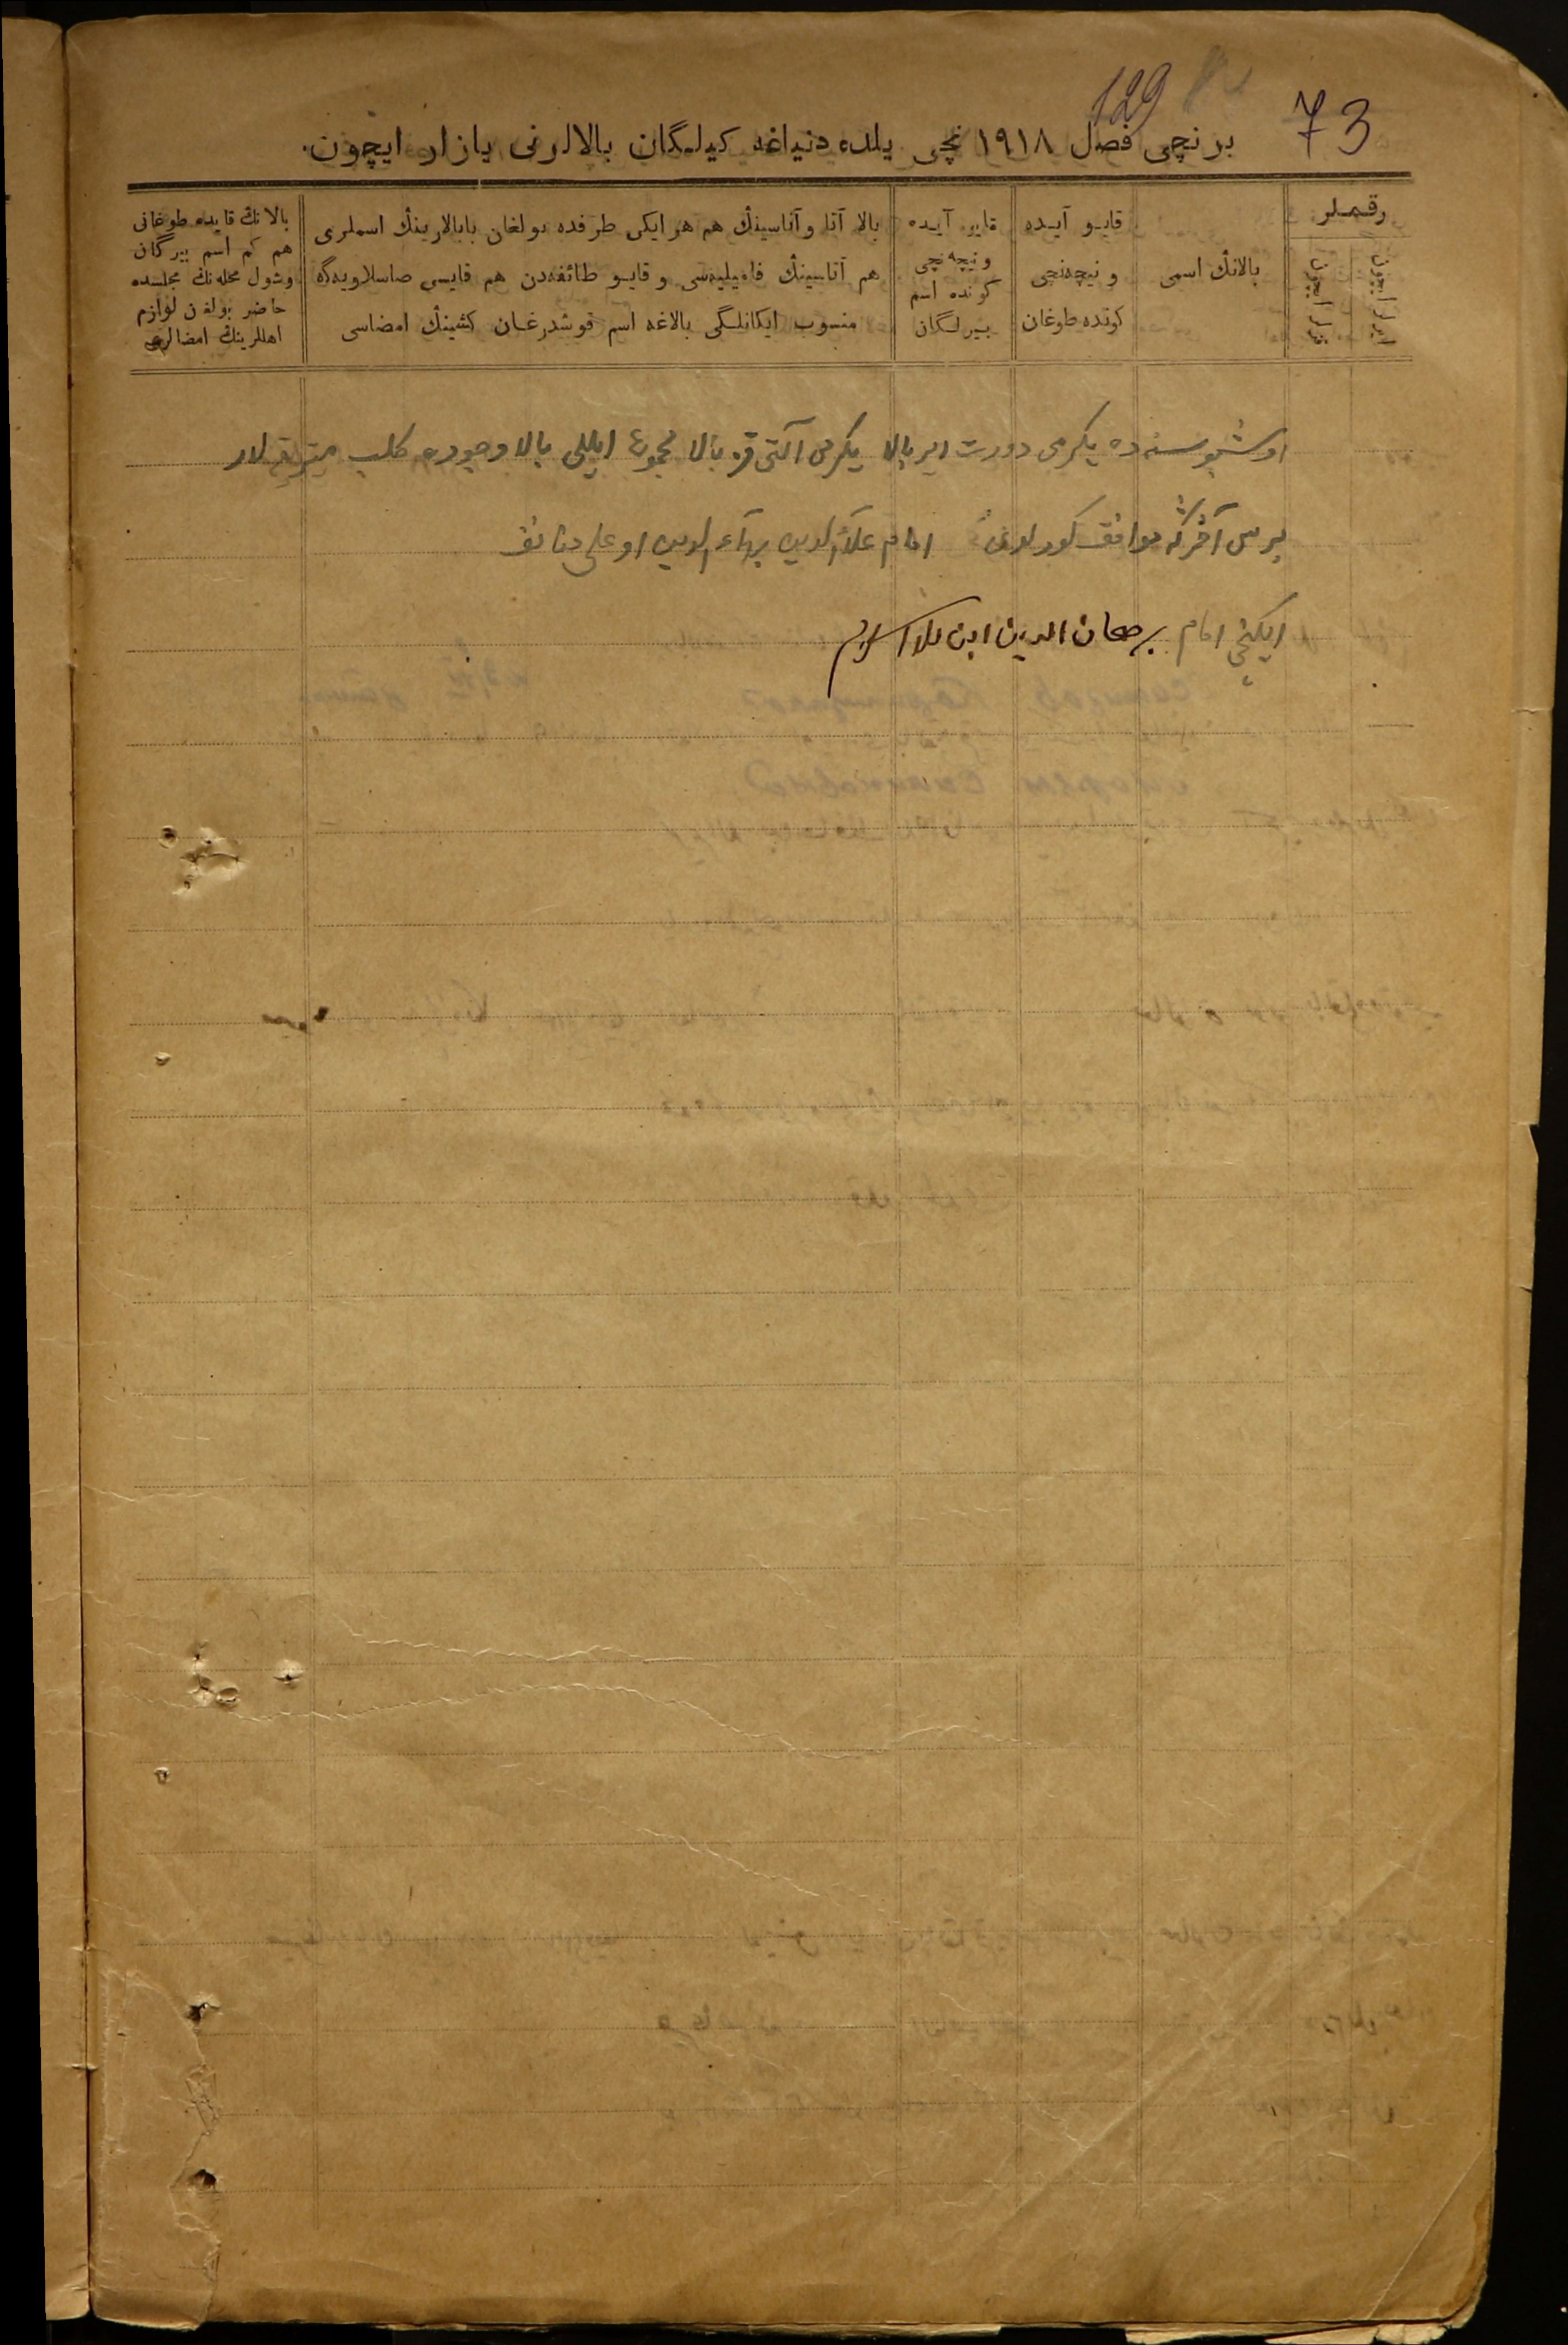 129
73
برنچی فصل ۱۹۱۸ نچی یلده دنیاغه کیلگان بالالرنی یازار ایچون.
رقملر
ایرلر ایچون
قزلر ایچون
بالانڭ اسمی
قایو آیده
ونیچه‌نچی
کونده طوغان
قایو آیده
ونیچه‌نچی
کونده اسم
بیرلگان
بالا آتا وآناسینڭ هم هر ایکی طرفده بولغان بابالارینڭ اسملری
هم آتاسینڭ فامیلیه‌سی وقایو طائفه‌دن هم قایسی صاسلاویه‌گه
منسوب ایکانلگی بالاغه اسم قوشدرغان کشینڭ امضاسی
بالانڭ قایده طوغانی
هم کم اسم بیرگان
وشول محله‌نڭ مجلسده
حاضر بولغن لوازم
اهللرینڭ امضالری
اوشبو سنه ده یکرمی دورت ایر بالا یکرمی آلتی قز بالا مجموع ایللی بالا وجودە کلب
برسی آخرگه موافق کورلدی امام علاءالدین بهاءالدین اوغلی
ایکنچی امام برهان الدین ابن ملا